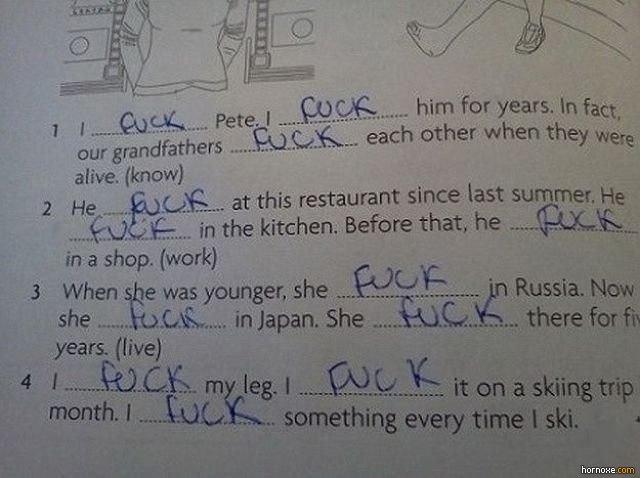 1 I FUCK Pete. I FUCK him for years. In fact,
our grandfathers FUCK each other when they were
alive. (know)
2 He FUCK at this restaurant since last summer. He
FUCK in the kitchen. Before that, he FUCK
in a shop. (work)
3 When she was younger, she FUCK in Russia. Now
she FUCK in Japan. She FUCK there for fiv
years. (live)
4 I FUCK my leg. I FUCK it on a skiing trip
month. I FUCK something every time I ski.
hornoxe.com